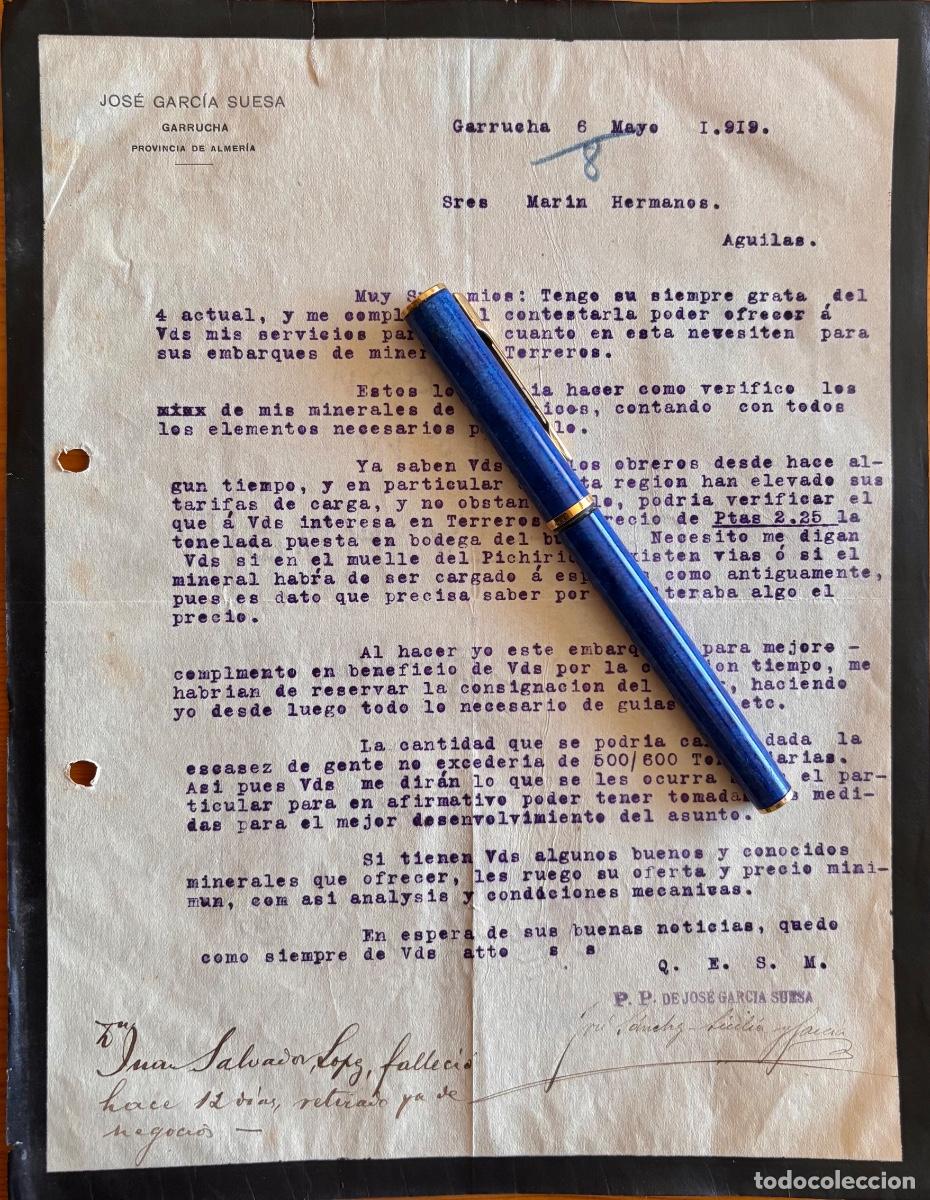 JOSÉ GARCÍA SUESA
GARRUCHA
PROVINCIA DE ALMERÍA
Garrucha 6 Mayo I.919.
8
Sres Marin Hermanos.
Aguilas.
Muy mios: Tengo su siempre grata del
4 actual, y me contestarla poder ofrecer á
Vds mis servicios cuanto en esta necesiten para
sus embarques de Terreros.
Estos hacer como verifico los
minx de mis minerales de contando con todos
los elementos necesarios
Ya saben Vds los obreros desde hace al-
gun tiempo, y en particular region han elevado sus
tarifas de carga, y no podria verificar el
que á Vds interesa en Terreros de Ptas 2.25 la
tonelada puesta en bodega del Necesito me digan
Vds si en el muelle del existen vias ó si el
mineral habŕa de ser cargado á como antiguamente,
pues es dato que precisa saber por algo el
precio.
Al hacer yo este para mejore -
complmento en beneficio de Vds por la tiempo, me
habrian de reservar la consignacion del haciendo
yo desde luego todo lo necesario de guias etc.
La cantidad que se podria dada la
escasez de gente no excederia de 500/600
Asi pues Vds me dirán lo que se les ocurra el par-
ticular para en afirmativo poder tener medi-
das para el mejor desenvolvimiento del asunto.
Si tienen Vds algunos buenos y conocidos
minerales que ofrecer, les ruego su oferta y precio mini-
mun, com asi analysis y condiciones mecanicas.
En espera de sus buenas noticias, quedo
como siempre de Vds atto s s
Q. E. S. M.
P. P. DE JOSE GARCIA SUESA
José Sánchez
Dn Juan Salvador Lopez, falleció
hace 12 dias, retirado ya de
negocios —
todocoleccion